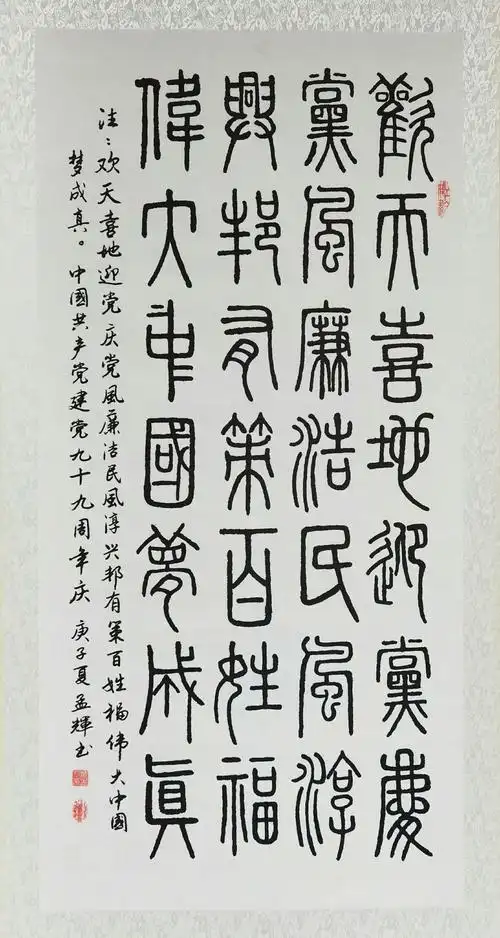 歡天喜地迎黨慶
黨風廉洁民風淳
興邦有策百姓福
偉大中國夢成真
注：欢天喜地迎党庆党風廉洁民風淳兴邦有策百姓福伟大中國
梦成真。中國共产党建党九十九周年庆 庚子夏孟輝书